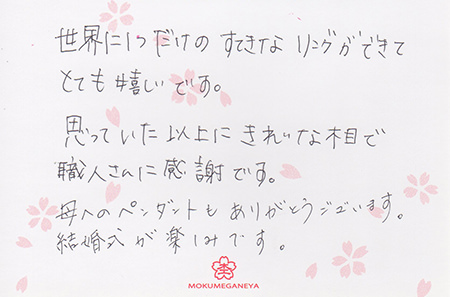 世界に1つだけの すてきな リングができて
とても嬉しいです。
思っていた以上に きれいな木目で
職人さんに感謝です。
母へのペンダントも ありがとうございます。
結婚式が楽しみです。
MOKUMEGANEYA